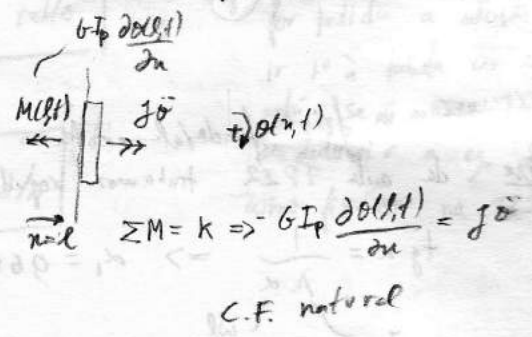 GIp ∂θ(l,t)/∂x
M(l,t) Jθ̈ + θ(x,t)
x=l ΣM = K => - GIp ∂θ(l,t)/∂x = Jθ̈
C.F. natural